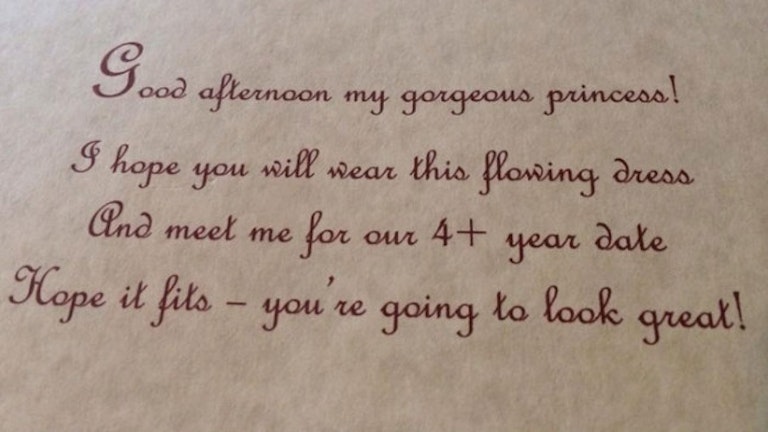 Good afternoon my gorgeous princess!
I hope you will wear this flowing dress
And meet me for our 4+ year date
Hope it fits – you're going to look great!